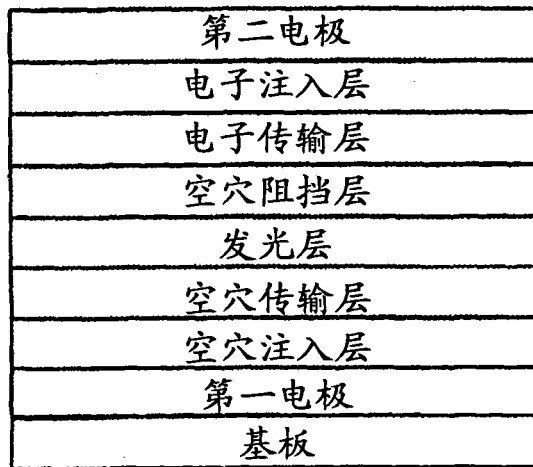 第二电极
电子注入层
电子传输层
空穴阻挡层
发光层
空穴传输层
空穴注入层
第一电极
基板